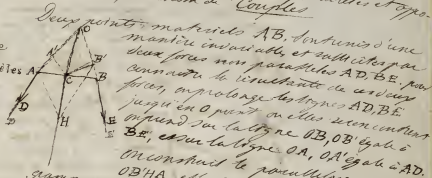 Couples
Deux points matériels AB, sont unis d'une
manière invariable et sollicités par
deux forces non parallèles AD, BE, pour
connaitre la résultante de ces deux
forces, on prolonge les lignes AD, BE
jusqu'en O point où elles se rencontrent
on prend sur la ligne OB, OB' égale à
BE, et sur la ligne OA, OA' égale à AD.
on construit le parallélo
OB'HA
O
A
B'
B
C
D
D
E
E
H